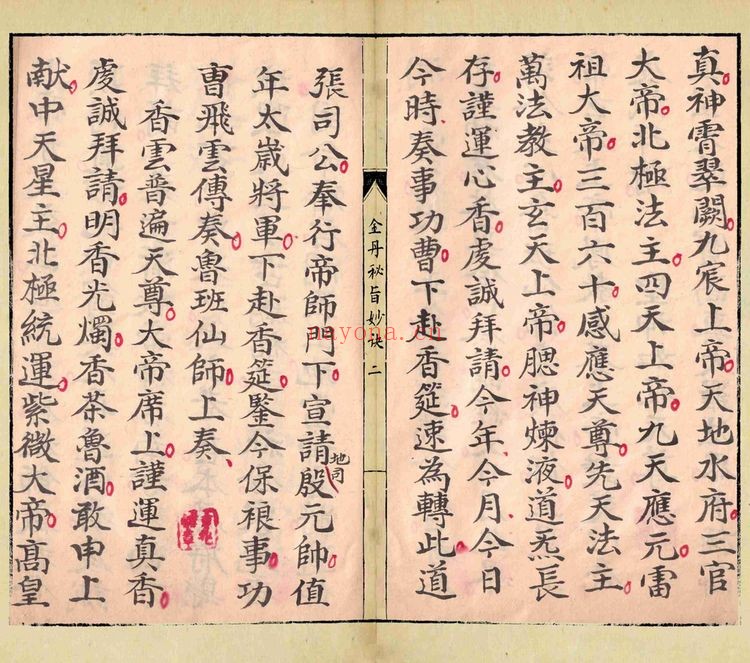 真神霄翠闕九宸上帝天地水府三官
大帝北極法主四天上帝九天應元雷
祖大帝三百六十感應天尊先天法主
萬法教主玄天上帝腮神煉液道炁長
存謹運心香虔誠拜請今年今月今日
今時奏事功曹下赴香筵速為轉此道
全丹祕旨妙诀 二
張司公奉行帝師門下宣請地司殷元帥值
年太歲將軍下赴香筵鑒今保裉事功
曹飛雲傳奏魯班仙師上奏
香雲普遍天尊大帝席上謹運真香
虔誠拜請明香光燭香茶魯酒敢申上
献中天星主北極統運紫微大帝高皇
nayona.cn